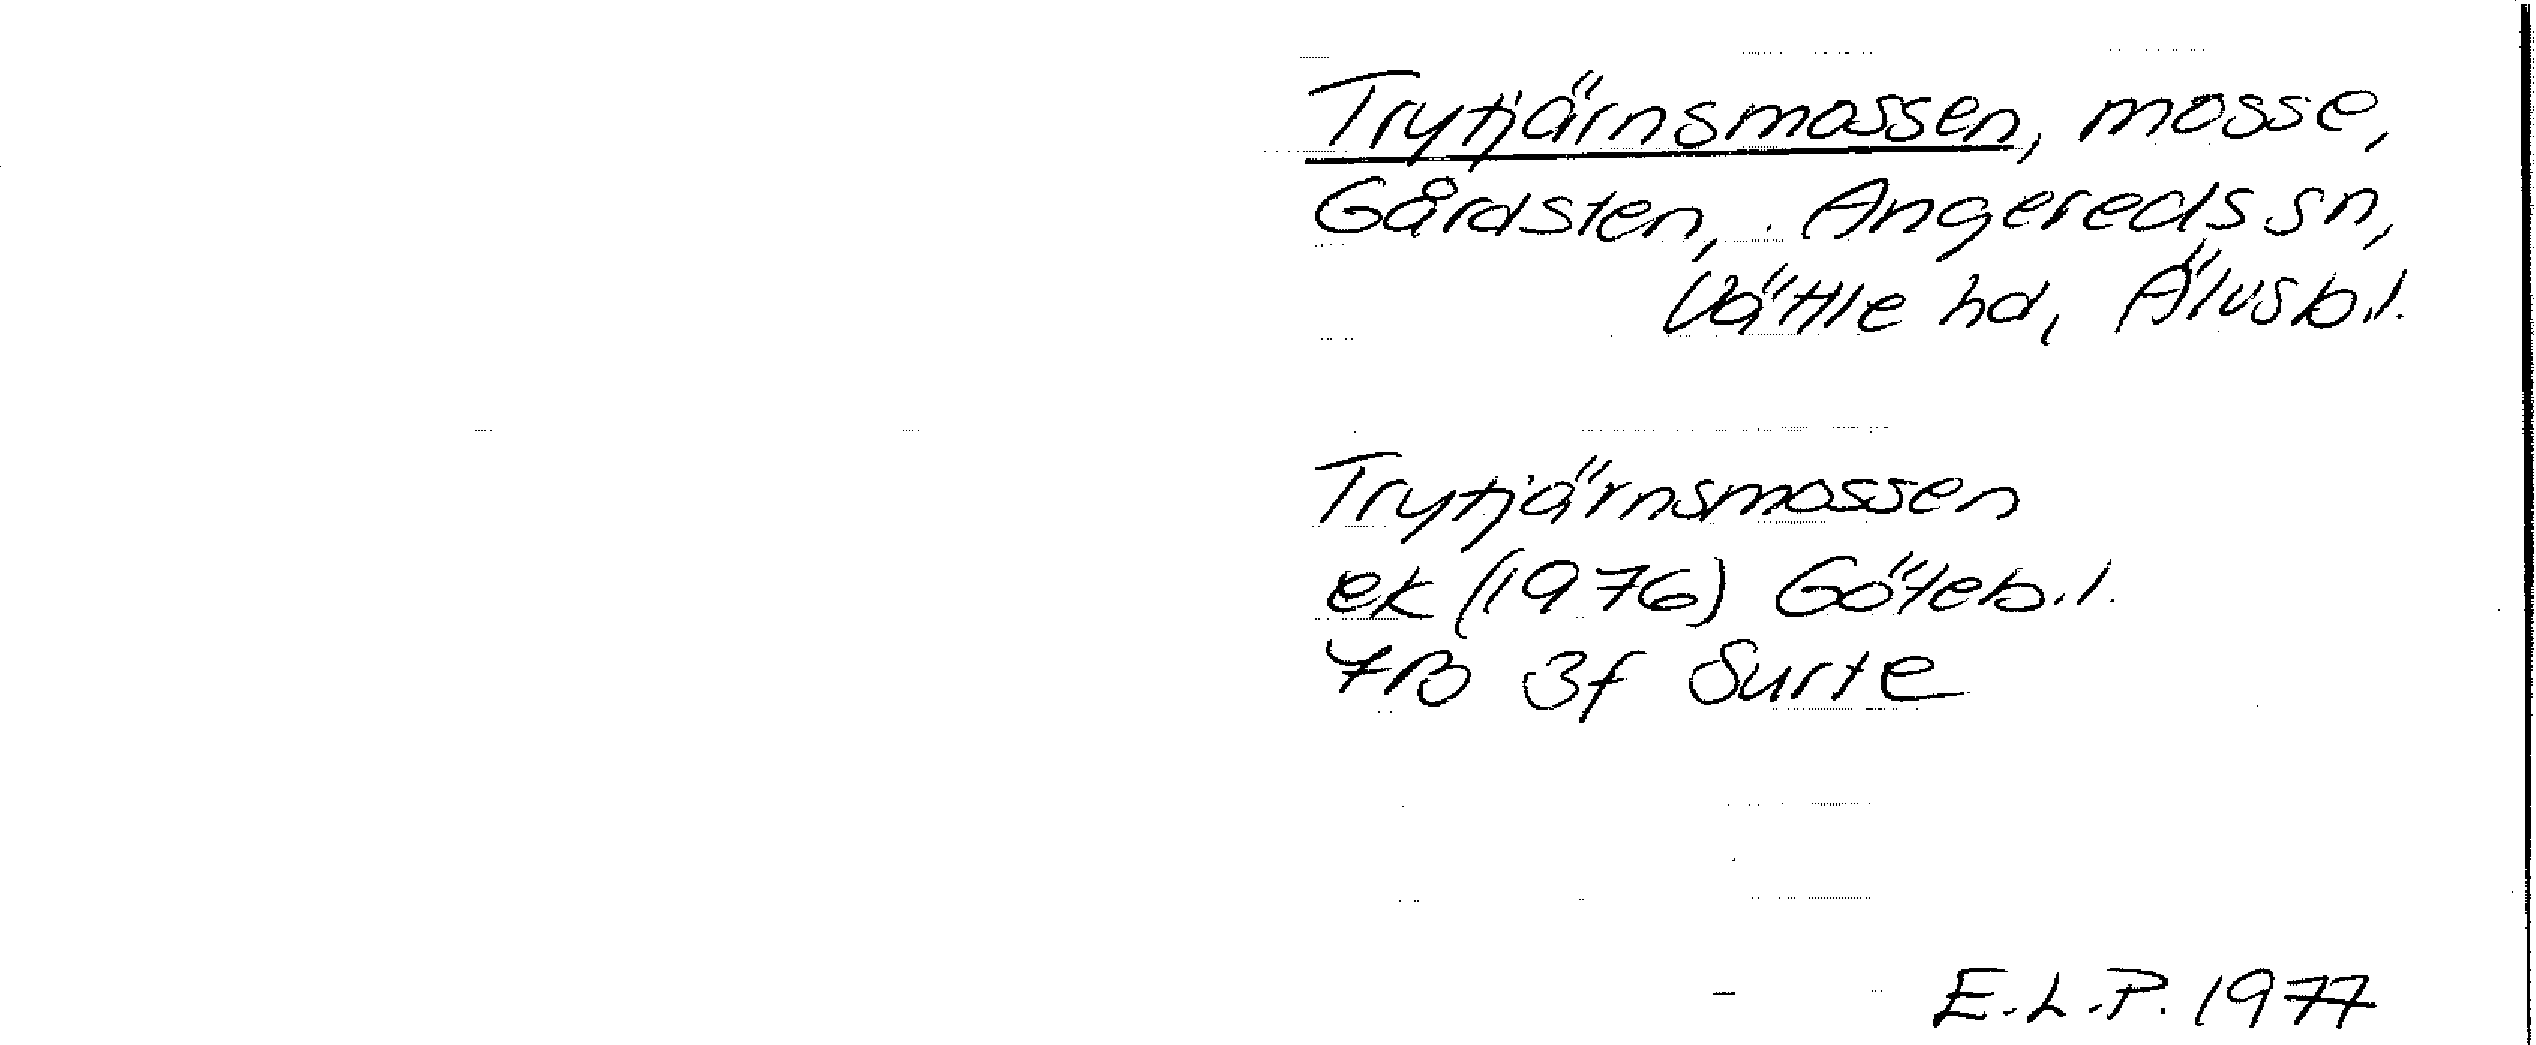 Trytjärnsmossen, mosse,
Gårdsten, Angereds sn,
Vättle hd, Älvsb.l.
Trytjärnsmossen
ek (1976) Göteb.l.
7B 3f Surte
E.L.P. 1977